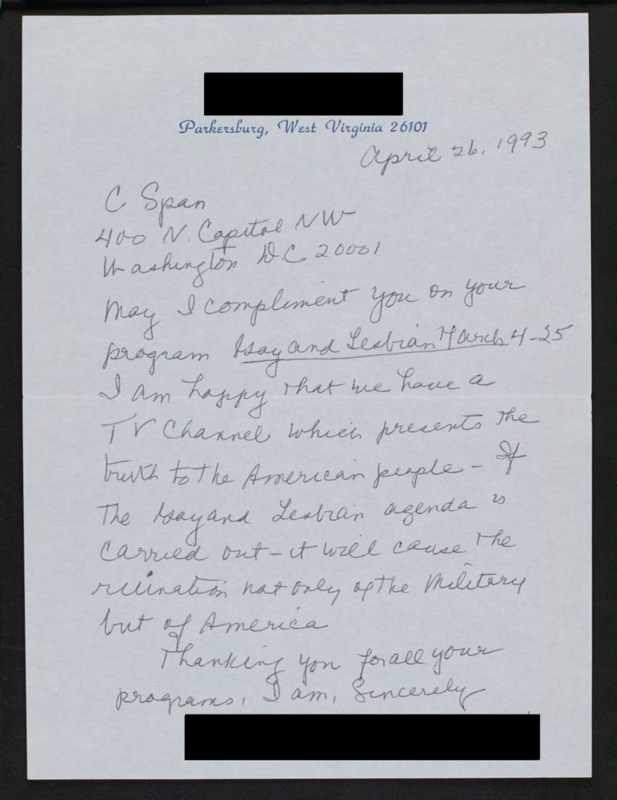 Parkersburg, West Virginia 26101
April 26, 1993
C Span
400 N. Capitol NW
Washington D.C. 20001
May I compliment you on your
program Gay and Lesbian March 4-25
I am happy that we have a
TV Channel which presents the
truth to the American people - If
The Gay and Lesbian agenda is
carried out - it will cause the
ruination not only of the Military
but of America
Thanking you for all your
programs, I am, Sincerely